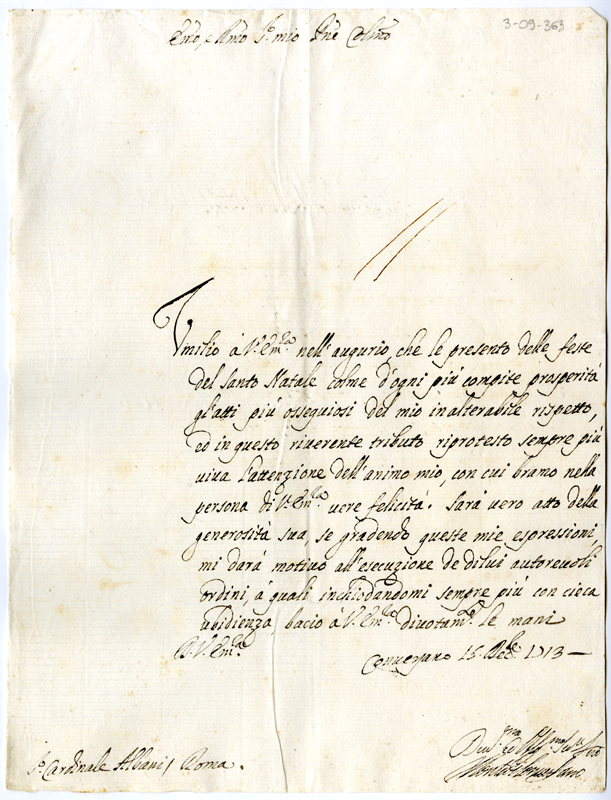 3-09-363
Emo, e Rmo Sr. mio Pne Colmo
Umilio à V. Emza nell'augurio, che le presento delle feste
del Santo Natale colme d'ogni più compite prosperità
gl'atti più ossequiosi del mio inalterabile rispetto,
ed in questo riverente tributo riprotesto sempre più
viva l'attenzione dell'animo mio, con cui bramo nella
persona di V. Emza vere felicità. Sarà vero atto della
generosità sua se gradendo queste mie espressioni,
mi darà motivo all'esecuzione de di lui autorevoli
ordini, à quali inchiodandomi sempre più con cieca
ubidienza, bacio à V. Emza divotamte. le mani
D. V. Emza
Conversano 16. Xbre. 1713
Sr. Cardinale Albani / Roma.